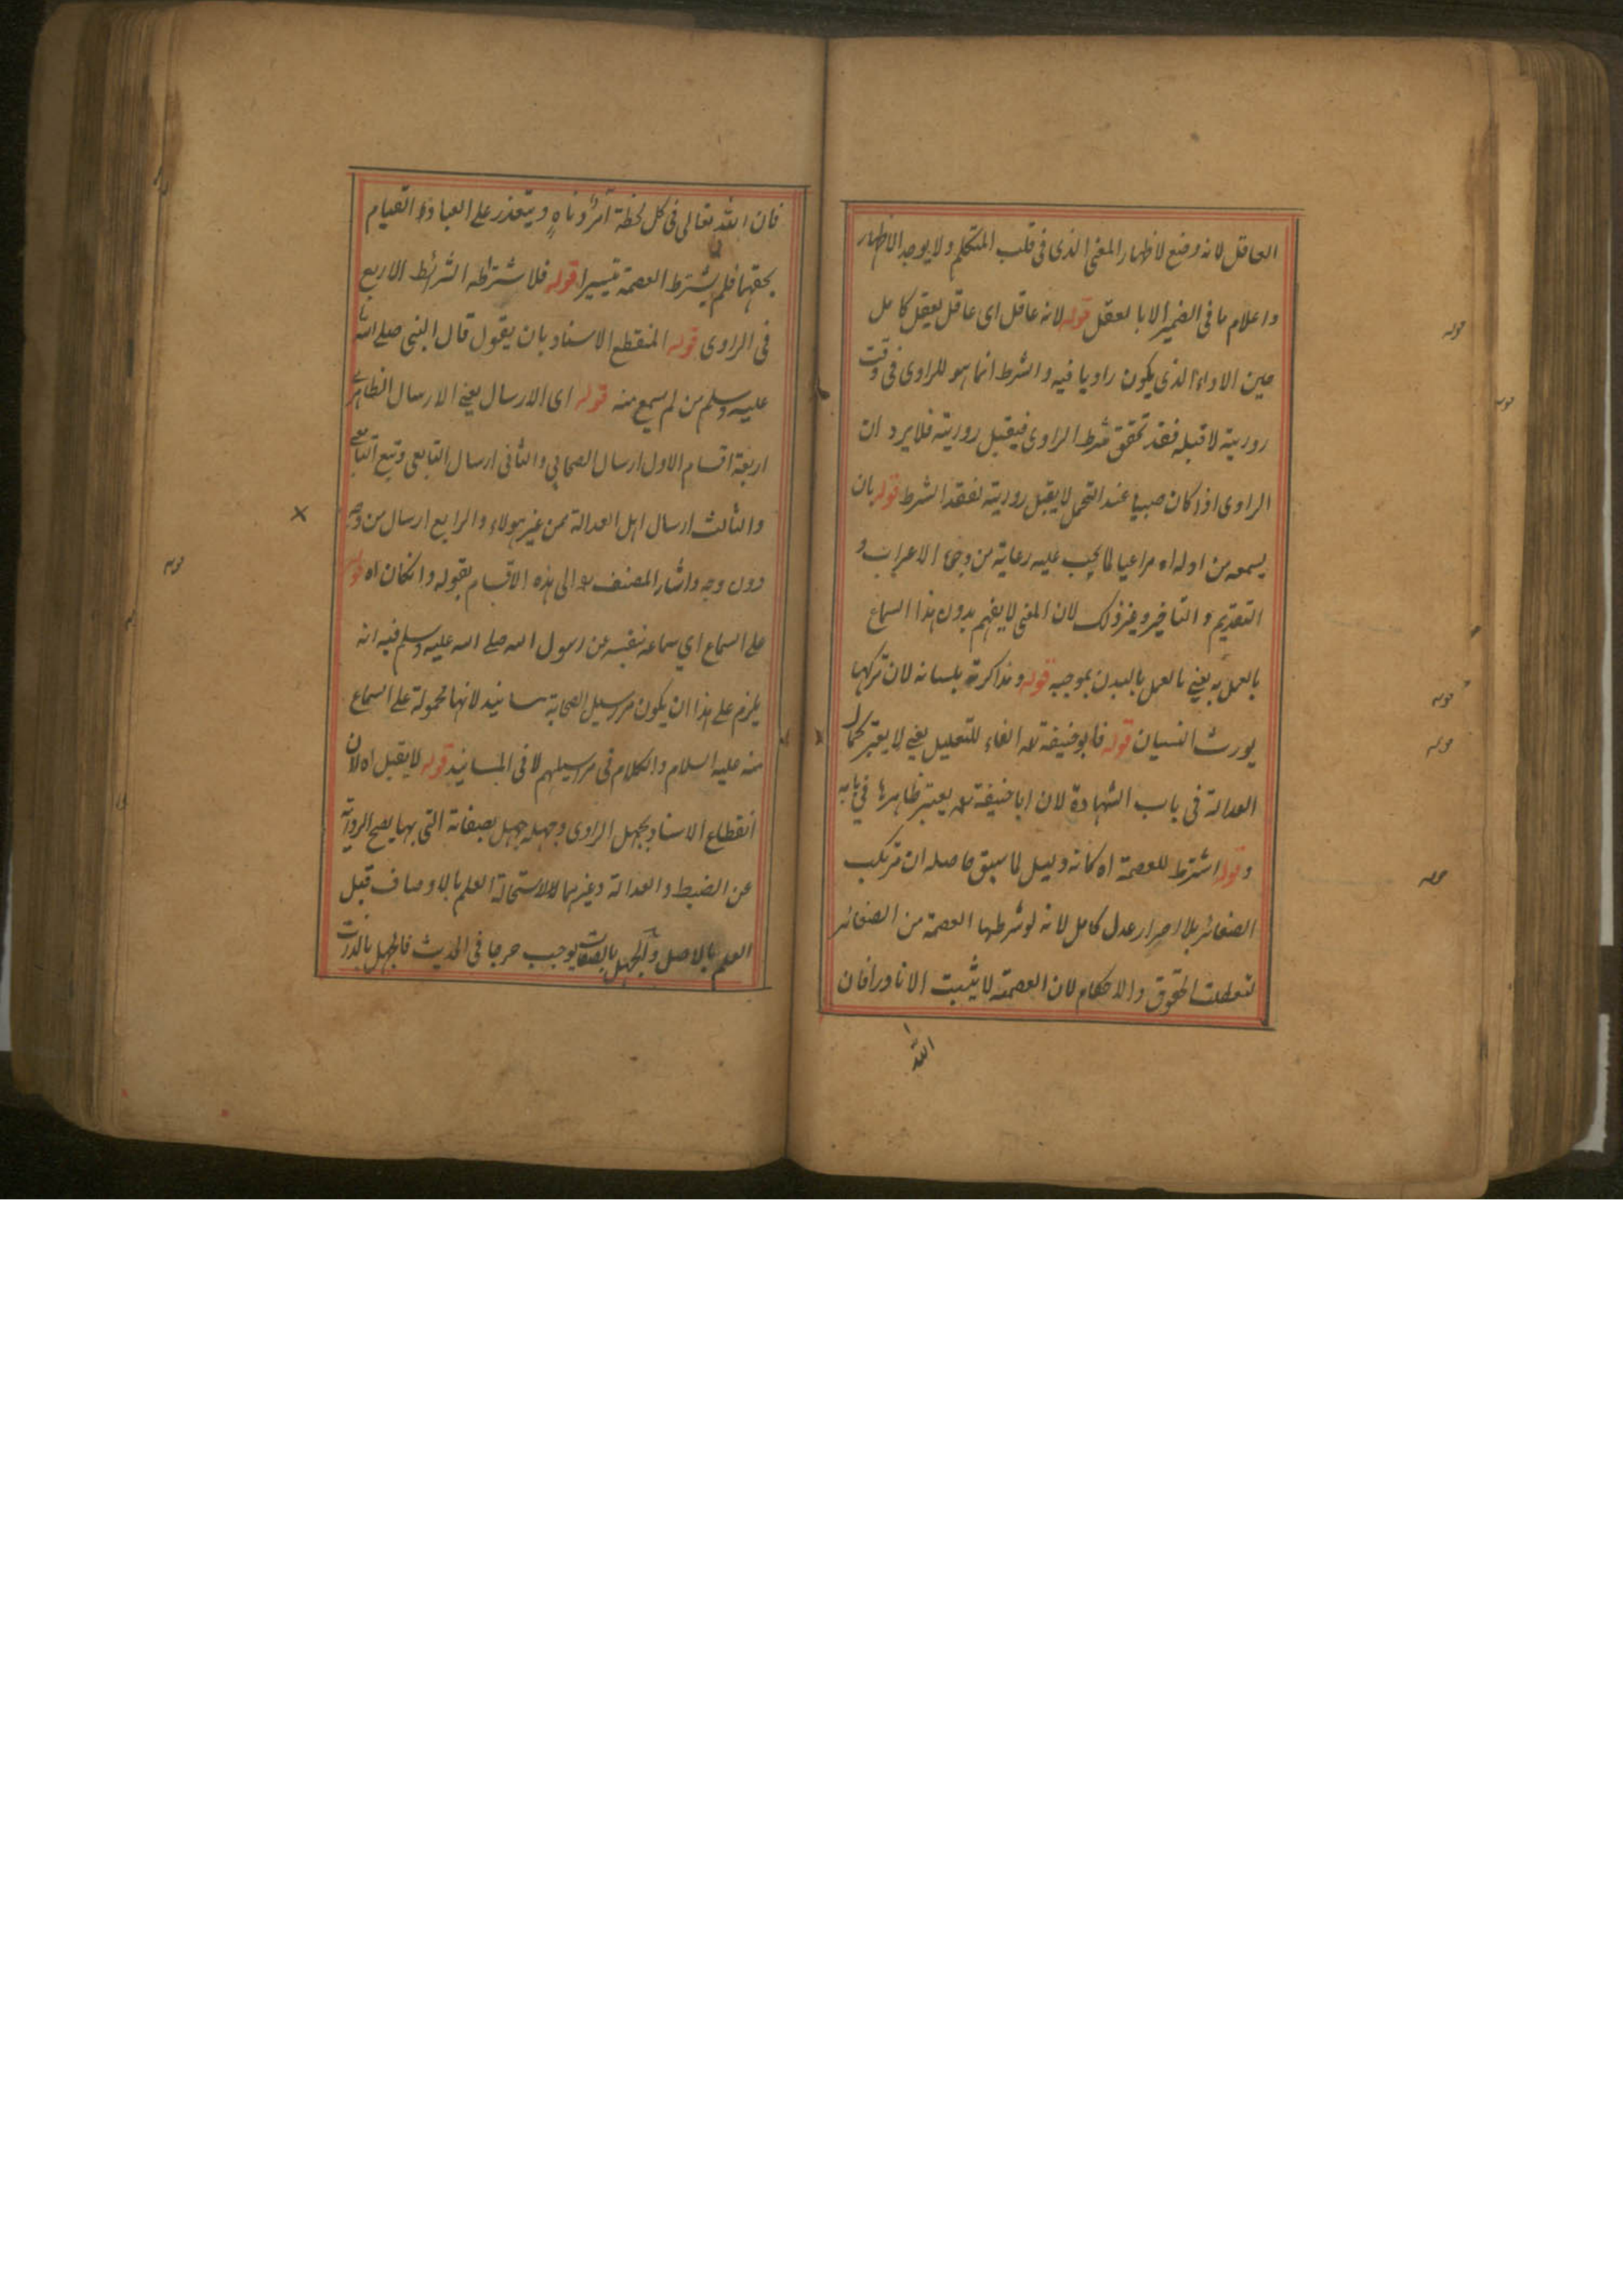 العاقل لانه وضع لاظهار المعنى الذى فى قلب المتكلم ولا يوجد الاظهار
واعلام ما فى الضمير الا بالعقل قوله لانه عاقل اى عاقل يعقل كامل
حين الاداء الذى يكون راويا فيه والشرط انما هو للراوى فى وقت
روريته لا قبله فقد تحقق شرط الراوى فيقبل روريته فلا يرد ان
الراوى اذا كان صبيا عند التحمل لا يقبل روريته لفقد الشرط قوله بان
يسمعه من اوله اه مراعيا لما يجب عليه رعايته من وجوه الاعراب و
التقديم والتاخير وغير ذلك لان المعنى لا يفهم بدون هذا السماع
بالعمل به يعنى بالعمل بالبدن بموجبه قوله ومذاكرته بلسانه لان تركها
يورث النسيان قوله فابو حنيفة رح الفاء للتعليل يعنى لا يعتبر كمال
العدالة فى باب الشهادة لان ابا حنيفة رح يعتبر ظاهرها فى بابه
و قوله اشترط للعصمة اه كانه دليل لما سبق حاصله ان مرتكب
الصغائر بلا اصرار عدل كامل لانه لو شرطها العصمة من الصغائر
لتعطلت الحقوق والاحكام لان العصمة لا يثبت الا نادرا فان
الله
قوله
قوله
قوله
قوله
قوله
فان الله تعالى فى كل لحظة امرا و ناه ويتعذر على العباد القيام
بحقها فلم يشترط العصمة تيسيرا قوله فلاشتراطه الشرائط الاربع
فى الراوى قوله المنقطع الاسناد بان يقول قال النبى صلى الله
عليه وسلم من لم يسمع منه قوله اى الارسال يعنى الارسال الظاهر
اربعة اقسام الاول ارسال الصحابي والثانى ارسال التابعى وتبع التابعى
والثالث ارسال اهل العدالة ممن غير هولاء والرابع ارسال من وجه
دون وجه واشار المصنف رح الى هذه الاقسام بقوله وانكان اه قوله
على السماع اي سماعه بنفسه من رسول الله صلے الله عليه وسلم فيه انه
يلزم على هذا ان يكون مرسيل الصحابة مسانيد لانها محمولة على السماع
منه عليه السلام والكلام فى مرسيلهم لا فى المسانيد قوله لا يقبل اه لان
انقطاع الاسناد بجهل الراوى وجهله جهل بصفاته التى بها يصح الرواية
من الضبط والعدالة وغيرهما لاستحالة العلم بالاوصاف قبل
العلم بالاصل والجهل بالصفات يوجب حرجا فى الحديث فالجهل بالذات
قوله